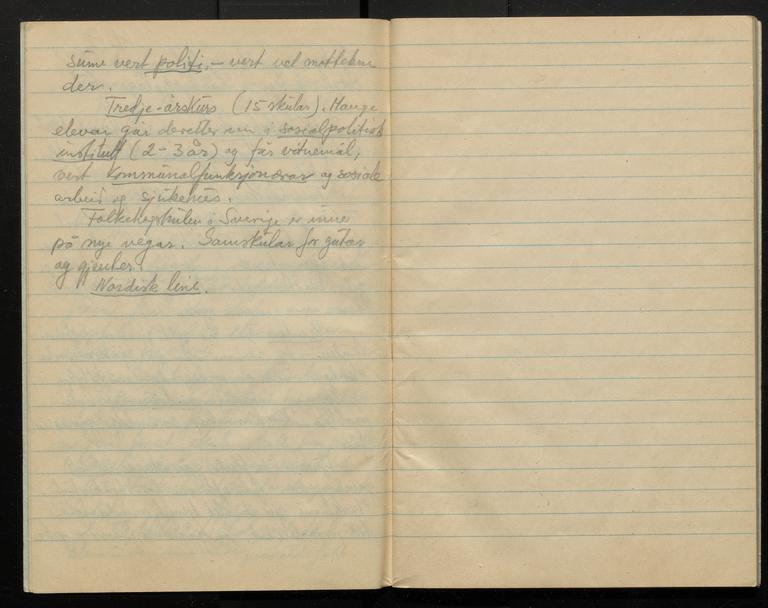 sume vert politi, – vert vel mottekne
der.
Tredje-årskurs (15 skular). Mange
elevar går deretter inn i sosialpolitisk
institutt (2-3 år) og får vitnemål,
vert kommunalfunksjonærar og sosiale
arbeid og sjukehus.
Folkehøgskulen i Sverige er inne
på nye vegar. Samskular for gutar
og gjenter.
Nordisk line.